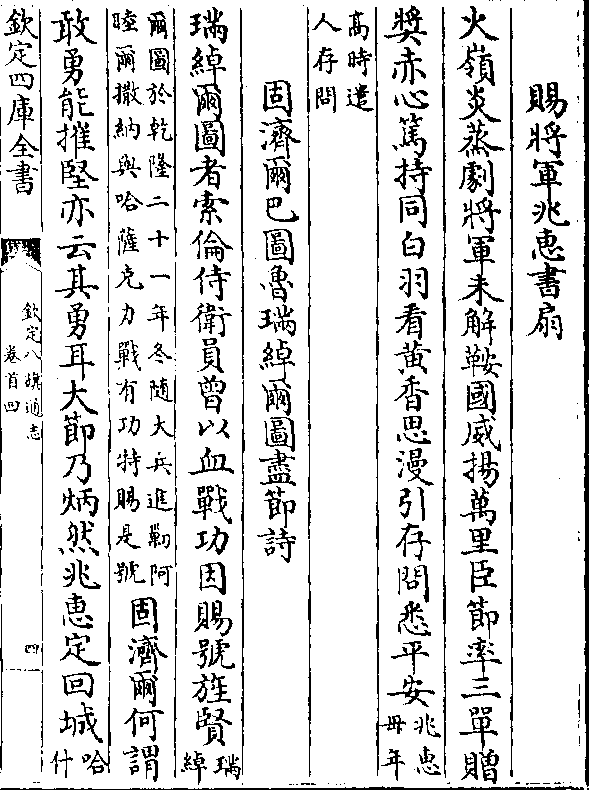 賜將軍兆惠書扇
火嶺炎蒸劇將軍未解鞍國威揚萬里臣節率三單贈
獎赤心篤持同白羽看黄香思漫引存問悉平安兆惠毋年
高時遣人存問
固濟爾巴圖魯瑞綽爾圖盡節詩
瑞綽爾圖者索倫侍衛員曾以血戰功因賜號旌賢瑞綽
爾圖於乾隆二十一年冬随大兵進勦阿睦爾撒納與哈薩克力戰有功特賜是號固濟爾何謂
敢勇能摧堅亦云其勇耳大節乃炳然兆惠定回城哈什
欽定四庫全書
欽定八旗通志
卷首四
四